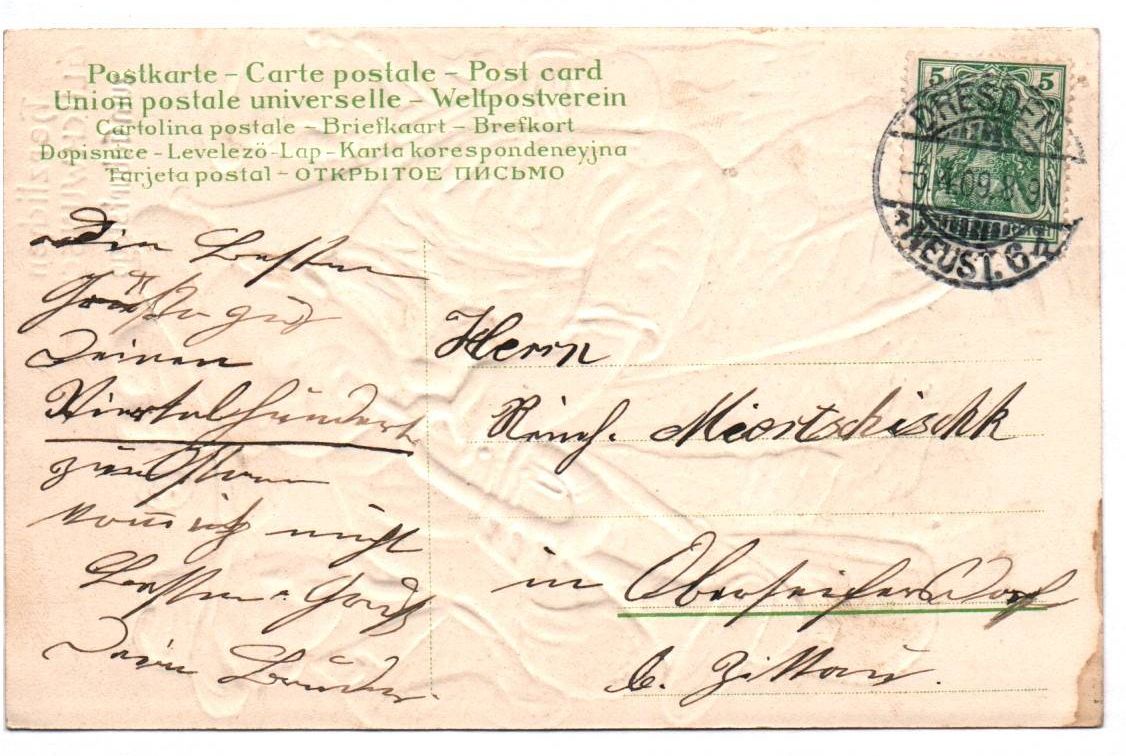 Postkarte – Carte postale – Post card
Union postale universelle – Weltpostverein
Cartolina postale – Briefkaart – Brefkort
Dopisnice – Levelező-Lap – Karta korespondencyjna
Tarjeta postal – ОТКРЫТОЕ ПИСЬМО
5 5
DRESDEN
3.4.09.8-9
* NEUST. 6
Die Besten
Grüße
Deinen
Viertelhundert
komm ich nicht
Besten Gruß
Dein Bruder
Herrn
Reinh. Miertschischk
in Oberseifersdorf
b. Zittau.